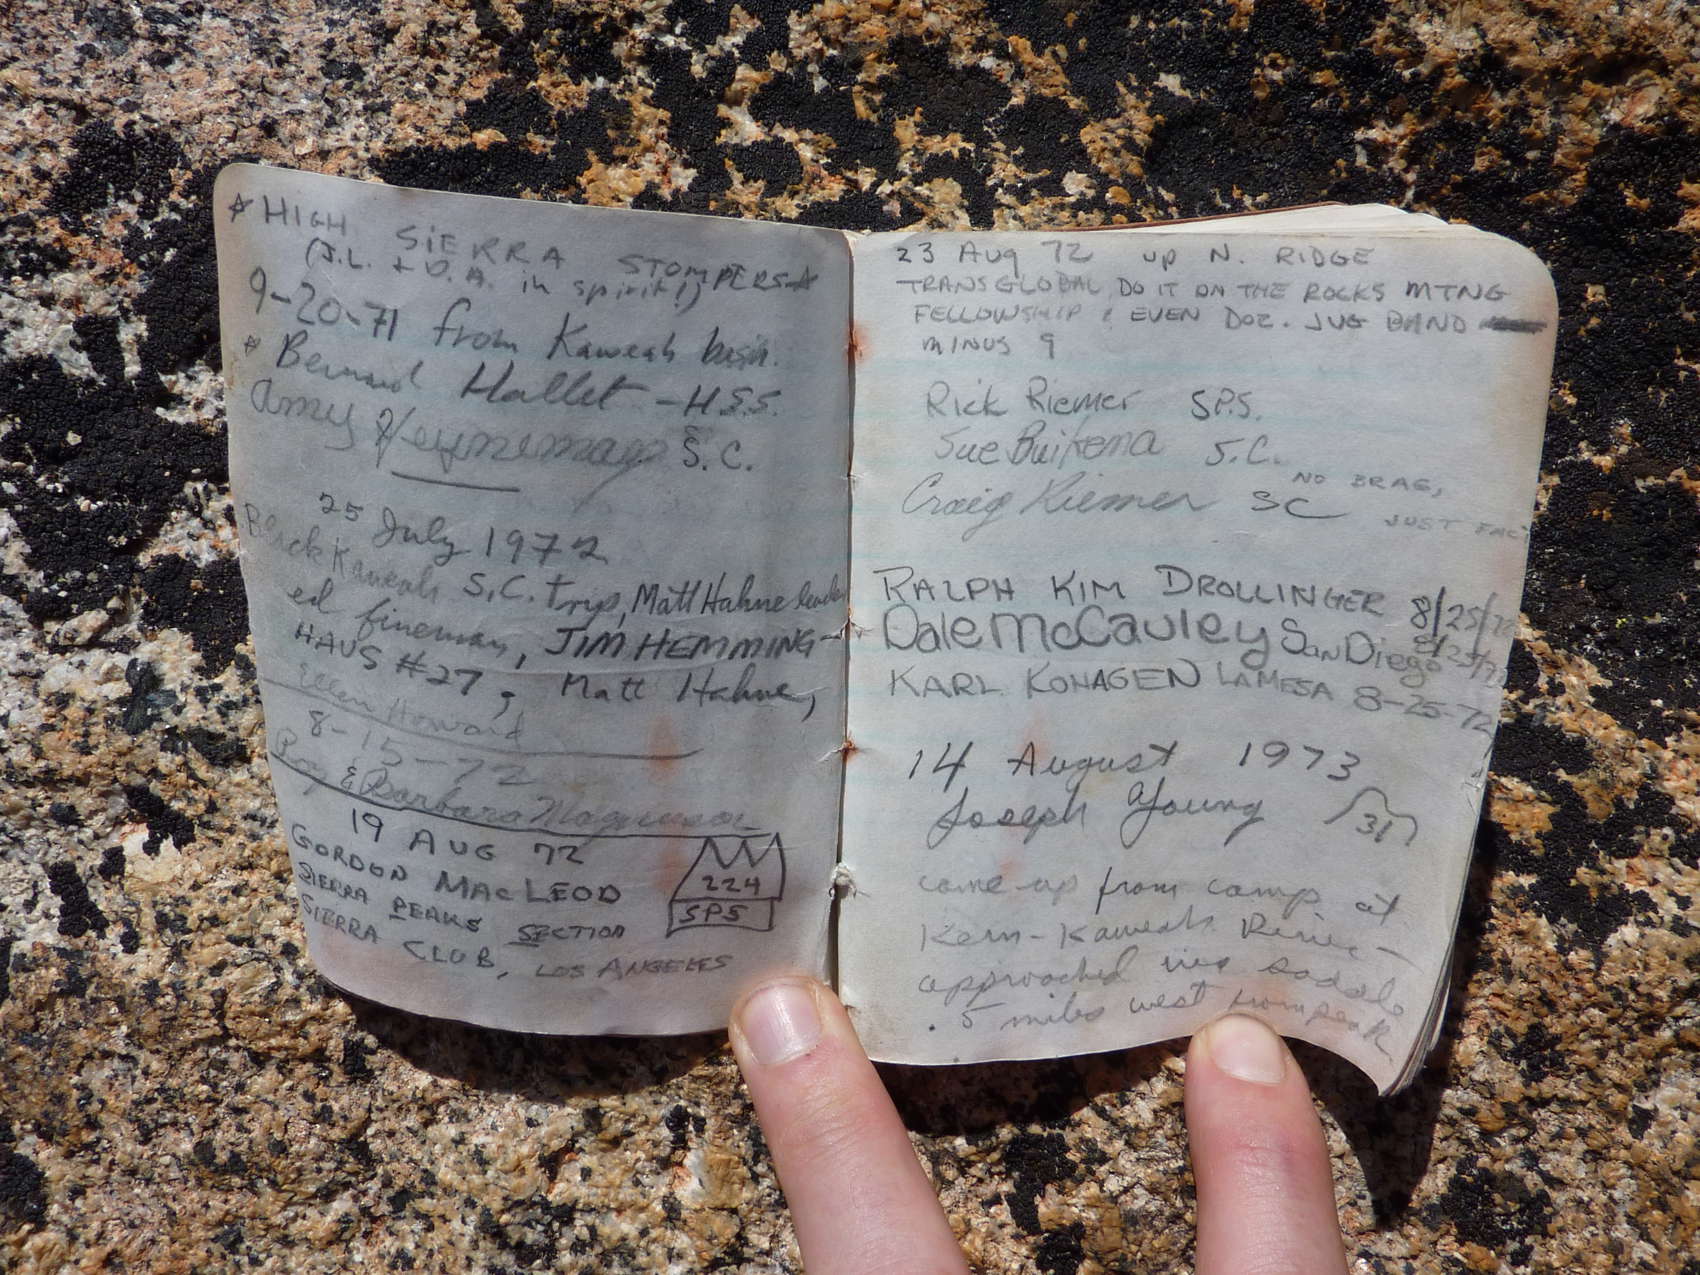 ☆ HIGH SIERRA STOMPERS ☆
(J.L. + D.A. in spirit!)
9-20-71 from Kaweah basin.
☆ Bernard Hallet - H.S.S.
Amy Heyneman S.C.
25 July 1972
Black Kaweah S.C. trip, Matt Hahne leader
ed fineman, JIM HEMMING-
HAUS #27, Matt Hahne,
Ellen Howard
8-15-72
Roy & Barbara Magnuson
19 AUG 72
GORDON MACLEOD
SIERRA PEAKS SECTION
SIERRA CLUB, LOS ANGELES
224
SPS
23 Aug 72 up N. RIDGE
TRANSGLOBAL DO IT ON THE ROCKS MTNG
FELLOWSHIP & EVEN DOZ. JUG BAND
MINUS 9
Rick Riemer SPS.
Sue Buikema S.C.
Craig Riemer SC
NO BRAG,
JUST FACT
RALPH KIM DROLLINGER 8/25/72
Dale McCauley San Diego 8/25/72
KARL KONAGEN LAMESA 8-25-72
14 August 1973
Joseph Young 31
came up from camp at
Kern-Kaweah River -
approached saddle
.5 miles west from peak